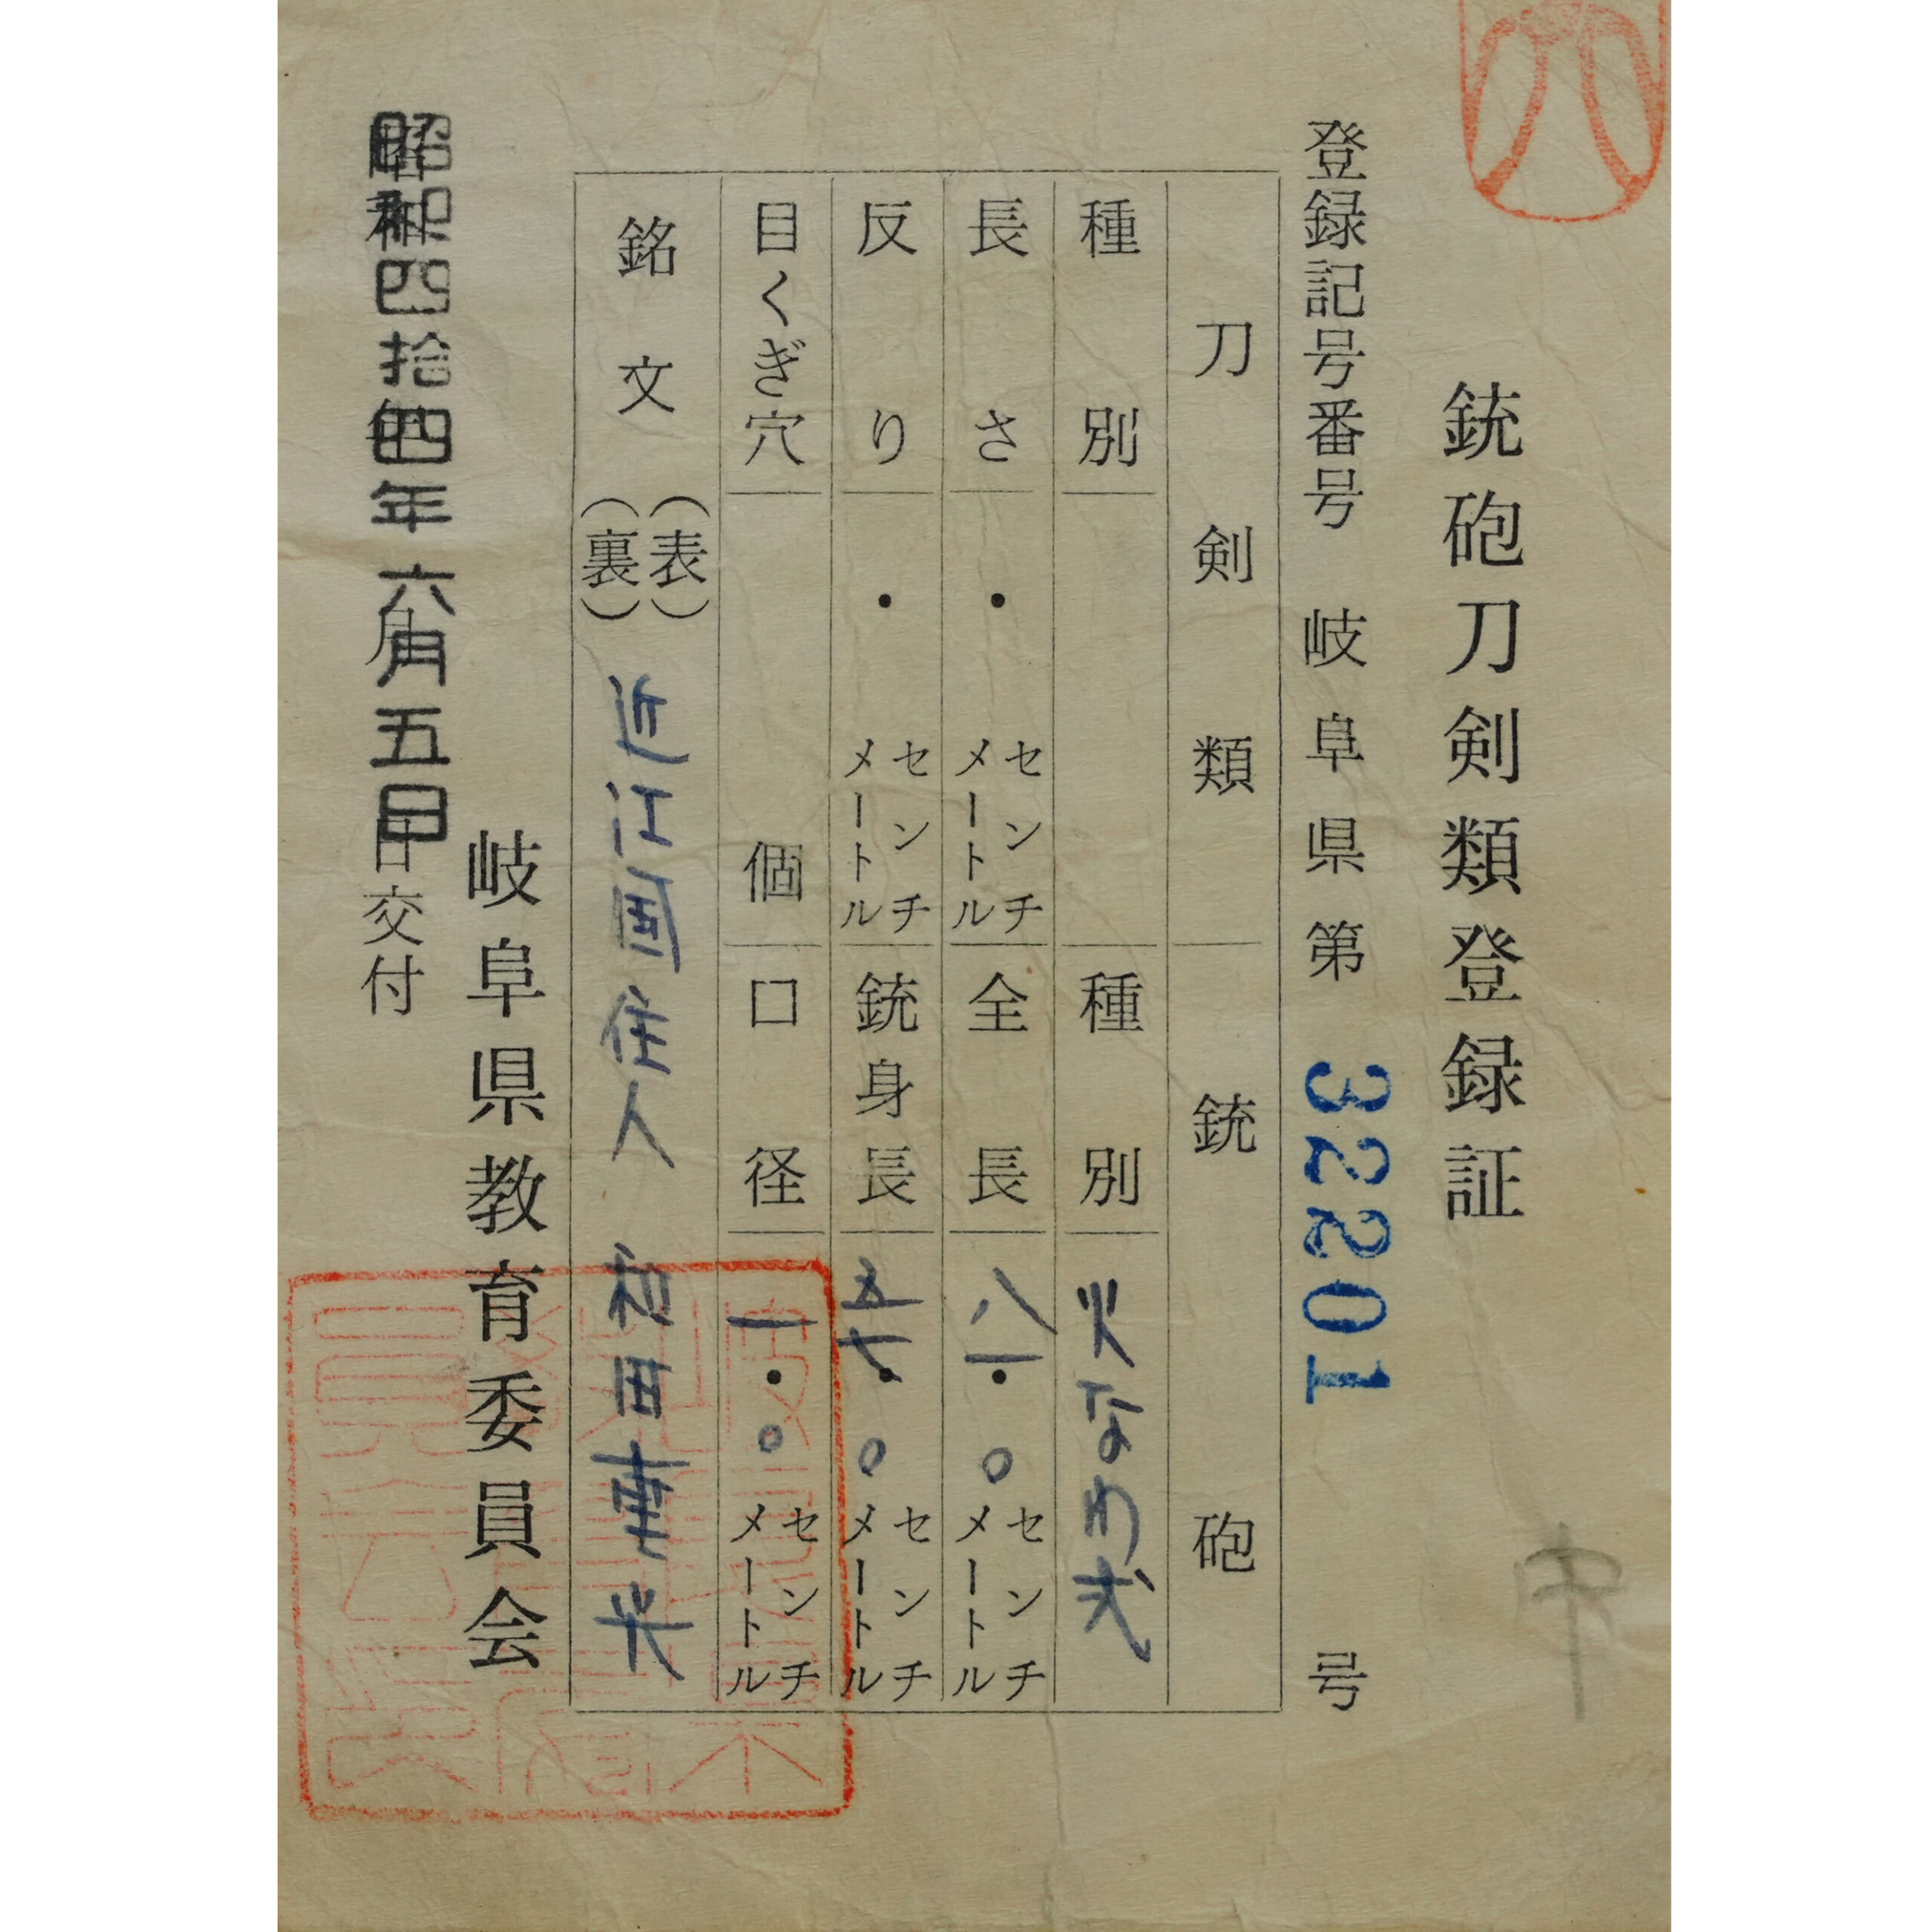 銃砲刀剣類登録証
登録記号番号 岐阜県第 32201 号
刀剣類 銃砲
種別 種別 火なわ式
長さ ・ センチメートル 全長 八一・〇 センチメートル
反り ・ センチメートル 銃身長 五七・〇 センチメートル
目くぎ穴 個 口径 一・〇 センチメートル
銘文 (表) (裏) 近江国住人 和田重光
岐阜県教育委員会
昭和四拾四年六月五日交付